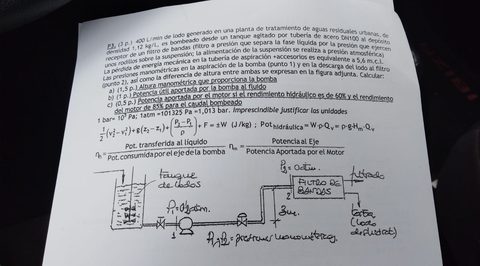 P3. (3 p.) 400 L/min de lodo generado en una planta de tratamiento de aguas residuales urbanas, de
densidad 1,12 kg/L, es bombeado desde un tanque agitado por tubería de acero DN100 al depósito
receptor de un filtro de bandas (filtro a presión que separa la fase líquida por la presión que ejercen
unos rodillos sobre la suspensión; la alimentación de la suspensión se realiza a presión atmosférica)
La pérdida de energía mecánica en la tubería de aspiración +accesorios es equivalente a 5,6 m.c.l.
Las presiones manométricas en la aspiración de la bomba (punto 1) y en la descarga del lodo al filtro
(punto 2), así como la diferencia de altura entre ambas se expresan en la figura adjunta. Calcular:
a) (1,5 p.) Altura manométrica que proporciona la bomba
b) (1 p.) Potencia útil aportada por la bomba al fluido
c) (0,5 p.) Potencia aportada por el motor si el rendimiento hidráulico es de 60% y el rendimiento
del motor de 85% para el caudal bombeado
1 bar= 10⁵ Pa; 1atm =101325 Pa =1,013 bar. Imprescindible justificar las unidades
1/2 (v₂² - v₁²) + g(z₂ - z₁) + (P₂ - P₁ / ρ) + F = ±W (J/kg) ; Pot hidráulica = W·ρ·Qᵥ = ρ·g·Hₘ·Qᵥ
ηₕ = Pot. transferida al líquido / Pot. consumida por el eje de la bomba ηₘ = Potencia al Eje / Potencia Aportada por el Motor
tanque
de lodos
P₁=
1
2
3m
FILTRO DE
BANDAS
filtrado
torta
(lodo
P₁ y P₂ = presiones manométricas